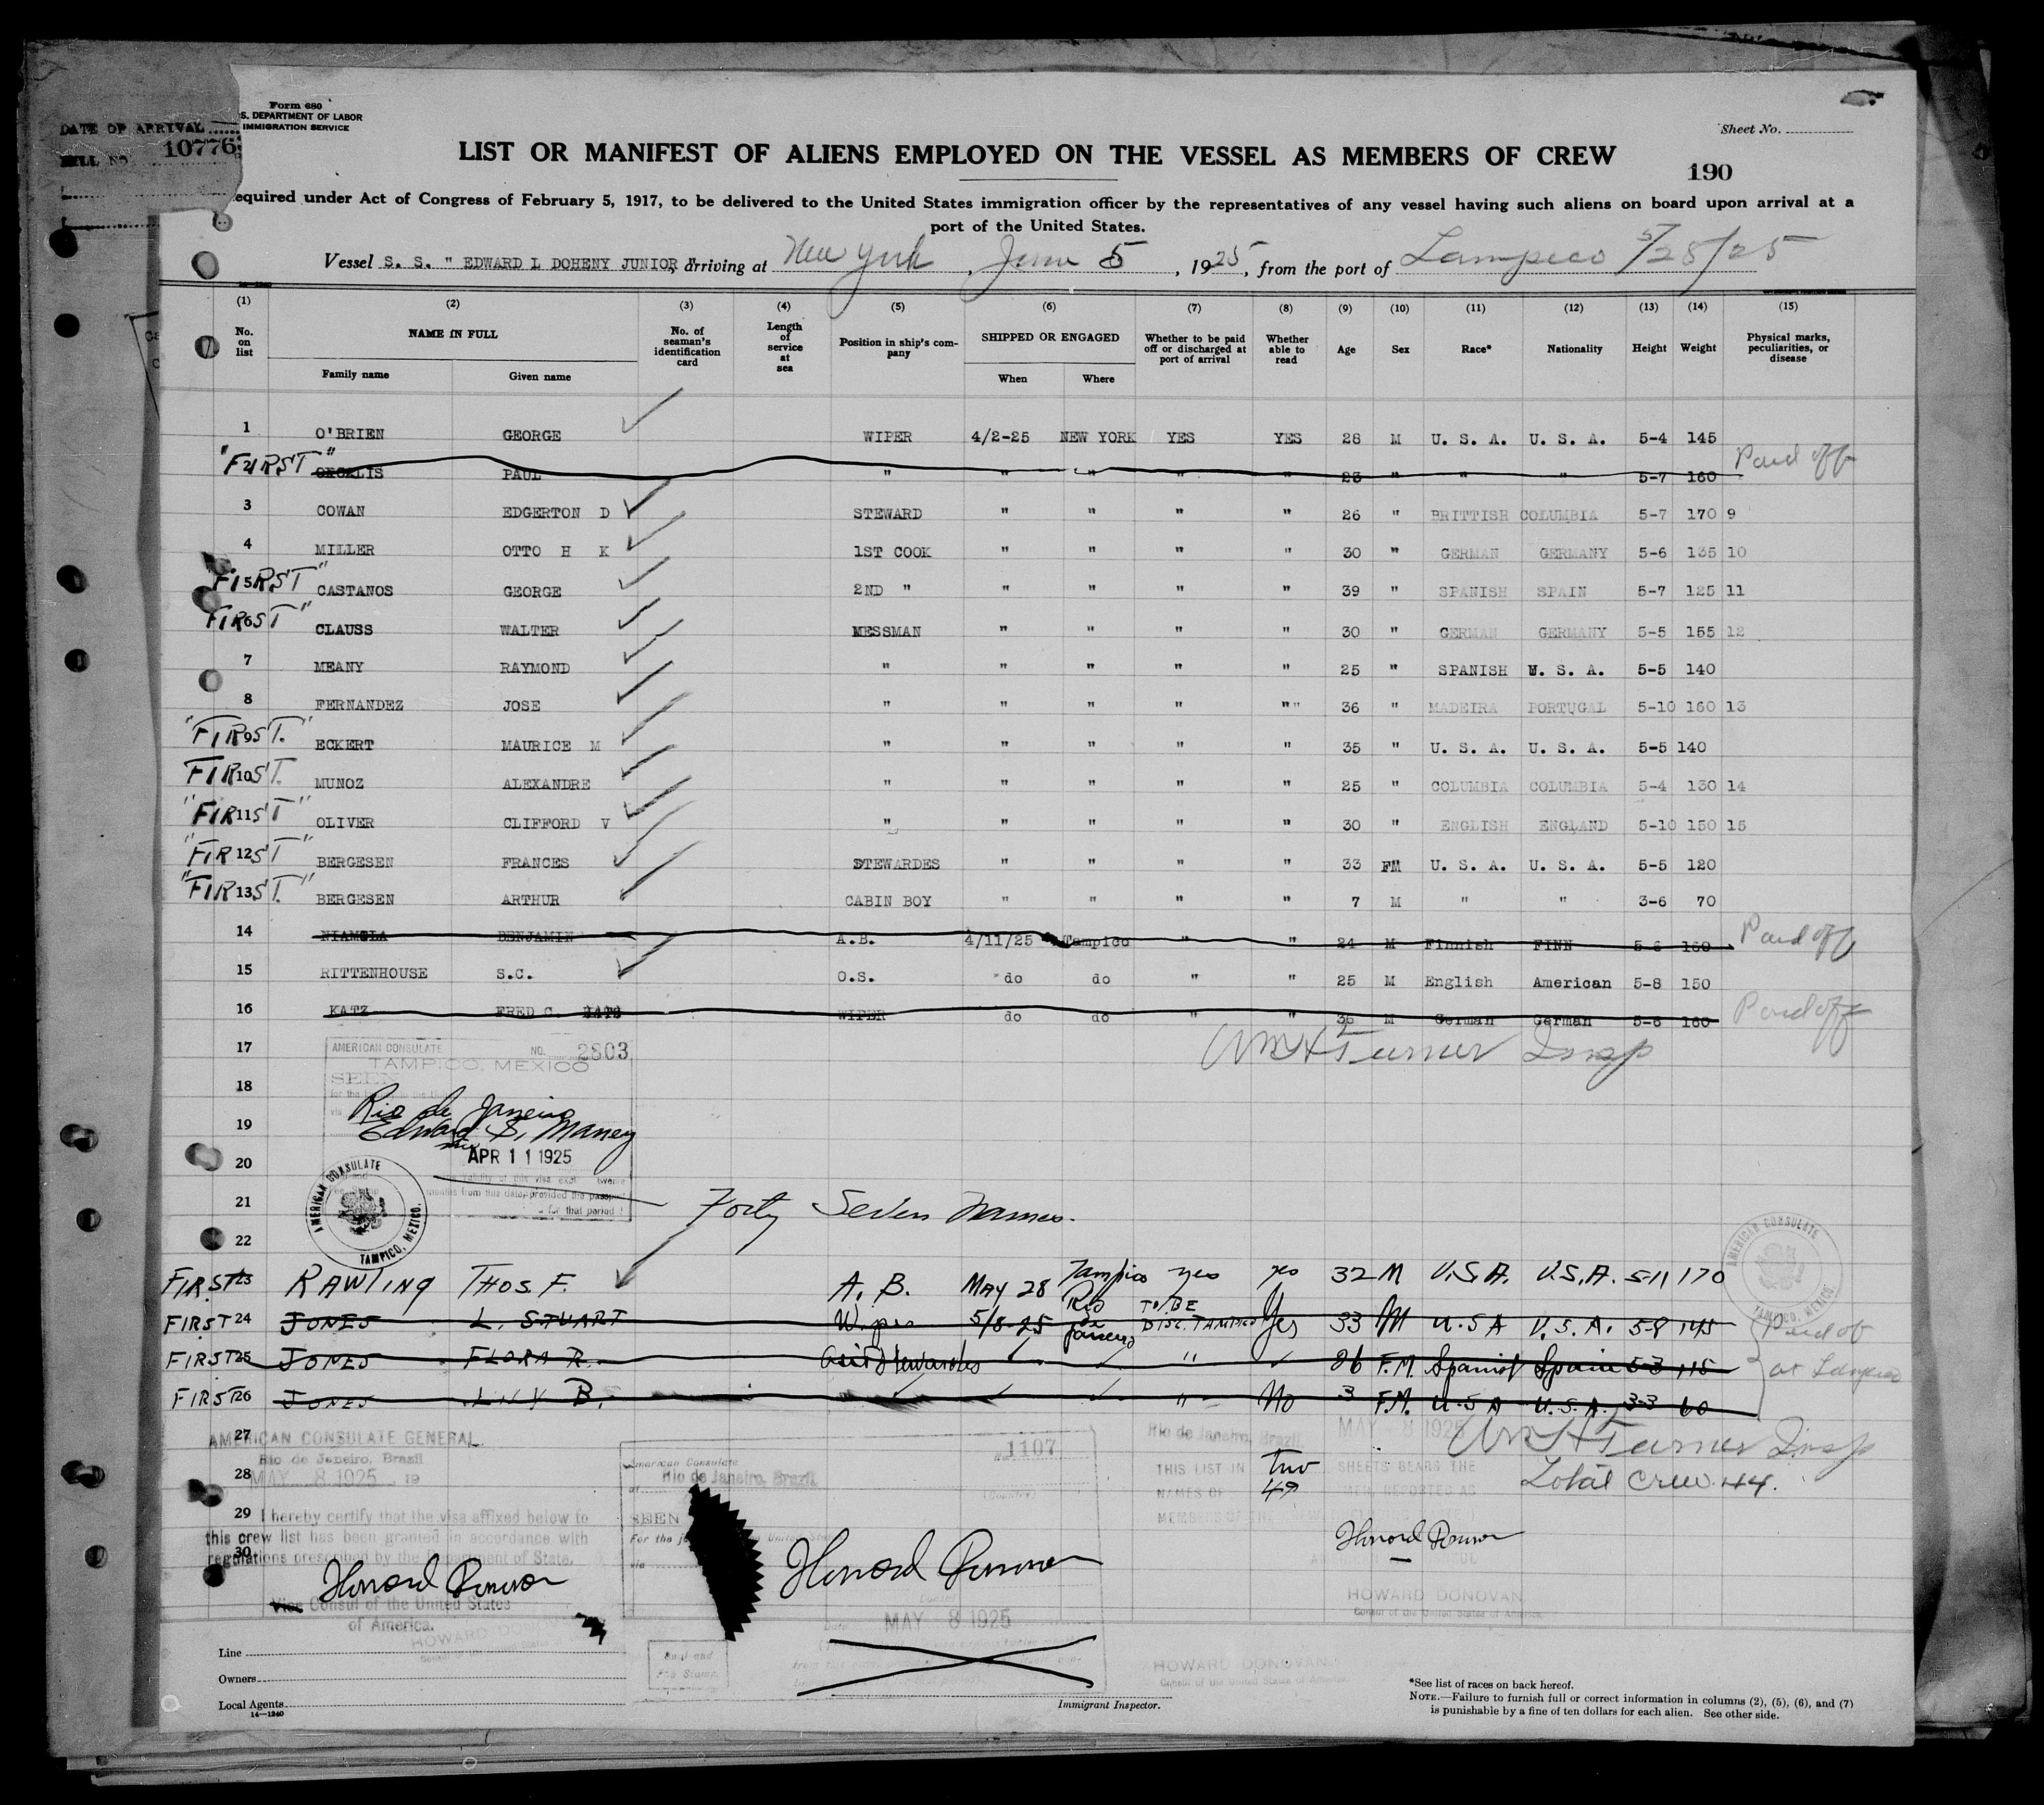 Form 680
S. DEPARTMENT OF LABOR
IMMIGRATION SERVICE
DATE OF ARRIVAL
10776
Sheet No.
LIST OR MANIFEST OF ALIENS EMPLOYED ON THE VESSEL AS MEMBERS OF CREW
190
equired under Act of Congress of February 5, 1917, to be delivered to the United States immigration officer by the representatives of any vessel having such aliens on board upon arrival at a
port of the United States.
Vessel S. S. " EDWARD L DOHENY JUNIOR ", arriving at New York, June 5, 1925, from the port of Tampico 5/28/25
(1) (2) (3) (4) (5) (6) (7) (8) (9) (10) (11) (12) (13) (14) (15)
No. on list NAME IN FULL No. of seaman's identification card Length of service at sea Position in ship's com-pany SHIPPED OR ENGAGED Whether to be paid off or discharged at port of arrival Whether able to read Age Sex Race* Nationality Height Weight Physical marks, peculiarities, or disease
Family name Given name When Where
1 O'BRIEN GEORGE WIPER 4/2-25 NEW YORK YES YES 28 M U. S. A. U. S. A. 5-4 145
"FIRST" 2 PAUL " " " " " 23 " " " 5-7 160 Paid off
3 COWAN EDGERTON D STEWARD " " " " 26 " BRITTISH COLUMBIA 5-7 170 9
4 MILLER OTTO H K 1ST COOK " " " " 30 " GERMAN GERMANY 5-6 135 10
FIRST" 5 CASTANOS GEORGE 2ND " " " " " 39 " SPANISH SPAIN 5-7 125 11
FIRST" 6 CLAUSS WALTER MESSMAN " " " " 30 " GERMAN GERMANY 5-5 155 12
7 MEANY RAYMOND " " " " " 25 " SPANISH U. S. A. 5-5 140
8 FERNANDEZ JOSE " " " " "" 36 " MADEIRA PORTUGAL 5-10 160 13
"FIRST." 9 ECKERT MAURICE M " " " " " 35 " U. S. A. U. S. A. 5-5 140
FIRST. 10 MUNOZ ALEXANDRE " " " " " 25 " COLUMBIA COLUMBIA 5-4 130 14
"FIRST" 11 OLIVER CLIFFORD V " " " " " 30 " ENGLISH ENGLAND 5-10 150 15
"FIRST" 12 BERGESEN FRANCES STEWARDES " " " " 33 FM U. S. A. U. S. A. 5-5 120
"FIRST." 13 BERGESEN ARTHUR CABIN BOY " " " " 7 M " " 3-6 70
14 NIAMOLA BENJAMIN A.B. 4/11/25 Tampico " " 24 M Finnish FINN 5-6 160 Paid off
15 RITTENHOUSE S.C. O.S. do do " " 25 M English American 5-8 150
16 KATZ FRED C. WIPER do do " " 36 M German German 5-6 160 Paid off
17 Wm H Turner Insp
AMERICAN CONSULATE NO. 2803
TAMPICO, MEXICO
SEEN
18
Rio de Janeiro
19
Edward S. Maney
APR 11 1925
20
validity of this visa exp twelve
months from this date, provided the passport
for that period
AMERICAN CONSULATE TAMPICO, MEXICO.
21 Forty Seven Names.
22
AMERICAN CONSULATE TAMPICO, MEXICO.
FIRST 23 RAWLING THOS F. A. B. MAY 28 Tampico yes yes 32 M U.S.A. U.S.A. 5-11 170
FIRST 24 JONES L. STUART Wiper 5/8-25 Rio de Janeiro TO BE DISC. TAMPICO Yes 33 M U.S A U.S.A. 5-8 145 Paid off
FIRST 25 JONES FLORA R. Asst Stewardes " 26 F.M. Spanish Spain 5-3 115 at Tampico
FIRST 26 JONES LILY B. " No 3 F.M. U.S A U.S.A. 3-3 60
27
Wm H Turner Insp
AMERICAN CONSULATE GENERAL
Rio de Janeiro, Brazil
MAY 8 1925 , 19
28
Total Crew 44.
29 I hereby certify that the visa affixed below to
this crew list has been granted in accordance with
regulations prescribed by the Department of State.
30
Howard Donovan
Vice Consul of the United States
of America.
HOWARD DONOVAN
American Consulate
No. 1107
Rio de Janeiro, Brazil
(Country)
SEEN
For the
via
Howard Donovan
MAY 8 1925
Rio de Janeiro, Brazil MAY 8 1925
THIS LIST IN two SHEETS BEARS THE
NAMES OF 47 MEN REPORTED AS
MEMBERS OF THE
Howard Donovan
HOWARD DONOVAN
Consul of the United States of America
HOWARD DONOVAN
Consul of the United States of America
Seal and
Fee Stamp
Line
Owners
Local Agents
14—1240
Immigrant Inspector.
*See list of races on back hereof.
NOTE.—Failure to furnish full or correct information in columns (2), (5), (6), and (7)
is punishable by a fine of ten dollars for each alien. See other side.